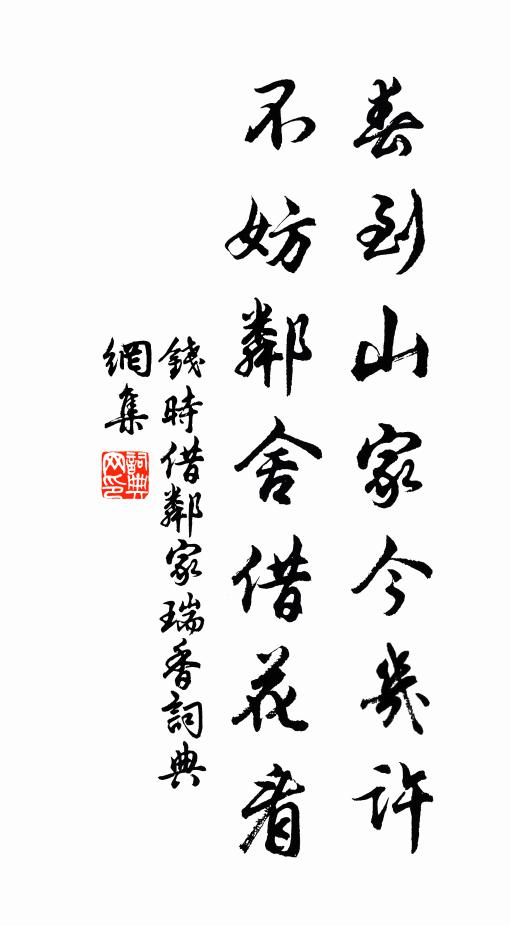 春到山家今幾許
不妨鄰舍借花看
錢時借鄰家瑞香詞典
網集
詞典网印